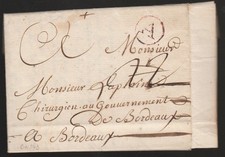 A Monsieur
Monsieur
Chirurgien au Gouvernement
De Bordeaux
A Bordeaux